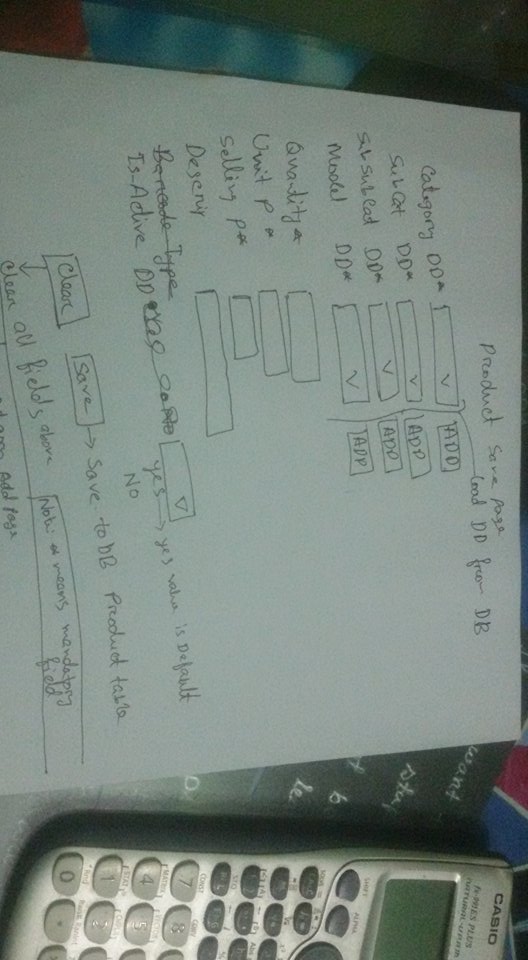 Product Save Page
Load DD from DB
Category DD* V ADD
SubCat DD* V ADD
SubSubCat DD* V ADD
Model DD* V ADD
Quantity *
Unit P *
Selling P*
Descrip
Barcode Type
Is-Active DD V
yes → yes value is Default
NO
Clear Save → Save to DB Product table
Clear all fields above
Note: * means mandatory
field
Add Page
want
stay
b
le
CASIO
fx-991ES PLUS
NATURAL-V.P.A.M.
SHIFT ALPHA
SOLVE =
CALC
Abs
STO
RCL
CONST CONV
7 8
MATRIX VECTOR
4 5
STAT CMPLX
1 2
Rnd Ran# RanInt
0 .